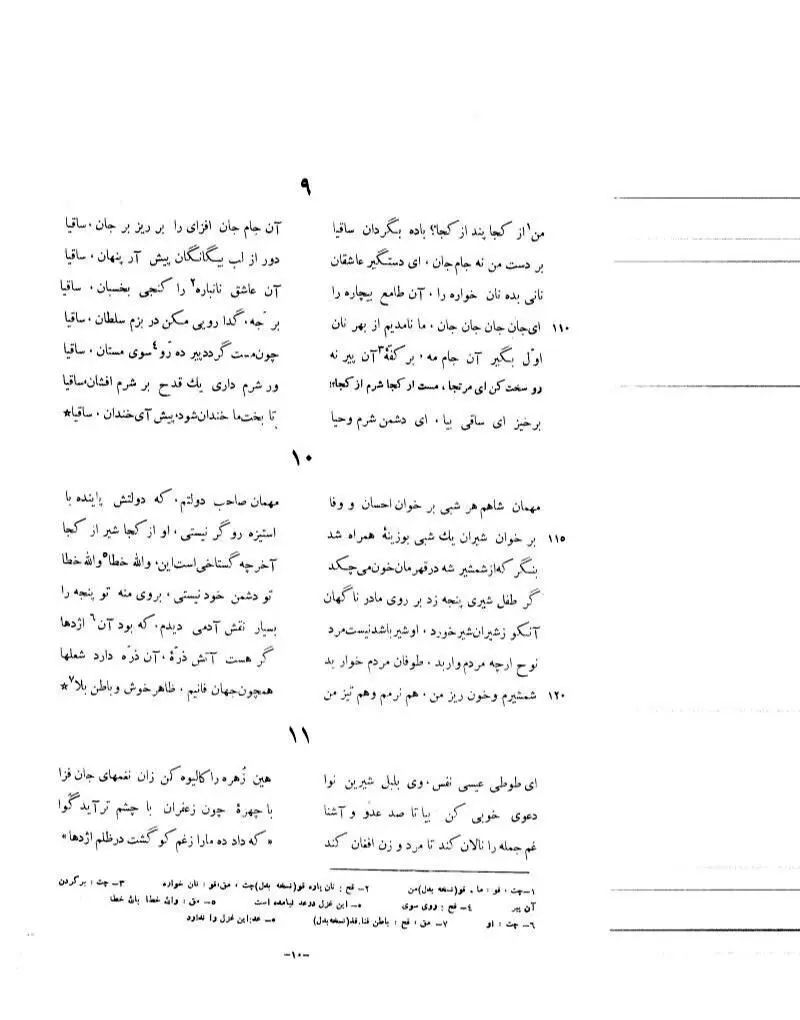 ۹
من۱ از کجا پند از کجا؟ باده بگردان ساقیا آن جام جان افزای را بر ریز بر جان، ساقیا
بر دست من نه جام جان، ای دستگیر عاشقان دور از لب بیگانگان پیش آر پنهان، ساقیا
نانی بده نان خواره را، آن طامع بیچاره را آن عاشق نانباره۲ را کنجی بخسبان، ساقیا
۱۱۰ ای جان جان جان جان، ما نامدیم از بهر نان بر جه، گدا رویی مکن در بزم سلطان، ساقیا
اوّل بگیر آن جام مه، بر کفّهٔ۳ آن پیر نه چون مست گردد پیر ده رَو۴ سوی مستان، ساقیا
رو سخت کن ای مرتجا، مست از کجا شرم از کجا؟! ور شرم داری یك قدح بر شرم افشان، ساقیا
برخیز ای ساقی بیا، ای دشمن شرم وحیا تا بخت ما خندان شود، پیش آی خندان، ساقیا*
۱۰
مهمان شاهم هر شبی بر خوان احسان و وفا مهمان صاحب دولتم، که دولتش پاینده با
۱۱۵ بر خوان شیران یك شبی بوزینهٔ همراه شد استیزه رو گر نیستی، او از کجا شیر از کجا
بنگر که از شمشیر شه در قهرمان خون می‌چکد آخر چه گستاخی است این، والله خطا۵ والله خطا
گر طفل شیری پنجه زد بر روی مادر ناگهان تو دشمن خود نیستی، بروی منه تو پنجه را
آنکو ز شیران شیر خورد، او شیر باشد نیست مرد بسیار نقش آدمی دیدم، که بود آن۶ اژدها
نوح ارچه مردم وار بد، طوفان مردم خوار بد گر هست آتش ذرّهٔ، آن ذرّه دارد شعلها
۱۲۰ شمشیرم وخون ریز من، هم نرمم وهم تیز من همچون جهان فانیم، ظاهر خوش و باطن بلا۷*
۱۱
ای طوطی عیسی نفس، وی بلبل شیرین نوا هین زُهره را کالیوه کن زان نغمهای جان فزا
دعوی خوبی کن بیا تا صد عدو و آشنا با چهرهٔ چون زعفران با چشم تر آید گُوا
غم جمله را نالان کند تا مرد و زن افغان کند «که داد ده ما را زغم کو گشت در ظلم اژدها»
۱– چت، فو : ما . قو(نسخه بدل)من ۲– فح : نان پاره قو(نسخه بدل)چت ، مق،فو : نان خواره ۳– چت : برگردن
آن پیر ۴– فح : روی سوی *– این غزل درعد نیامده است ۵– مق : والله خطا بالله خطا
۶– چت : او ۷– مق ، فح : باطن فنا.فذ(نسخه‌بدل) *– عد:این غزل را ندارد
–۱۰–